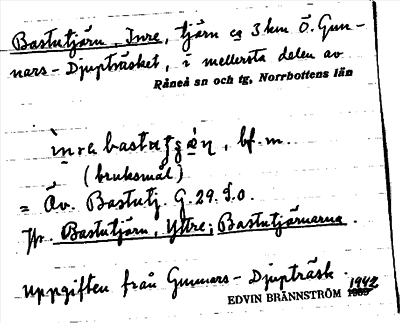 Bastutjärn, Inre, tjärn ca 3 km Ö. Gun-
nars-Djupträsket, i mellersta delen av
Råneå sn och tg, Norrbottens län
bf. m.
(bruksmål)
= Äv. Bastutj. G.29.S.O.
Jfr. Bastutjärn, Yttre; Bastutjärnarna.
Uppgiften från Gunnars-Djupträsk.
1942
EDVIN BRÄNNSTRÖM